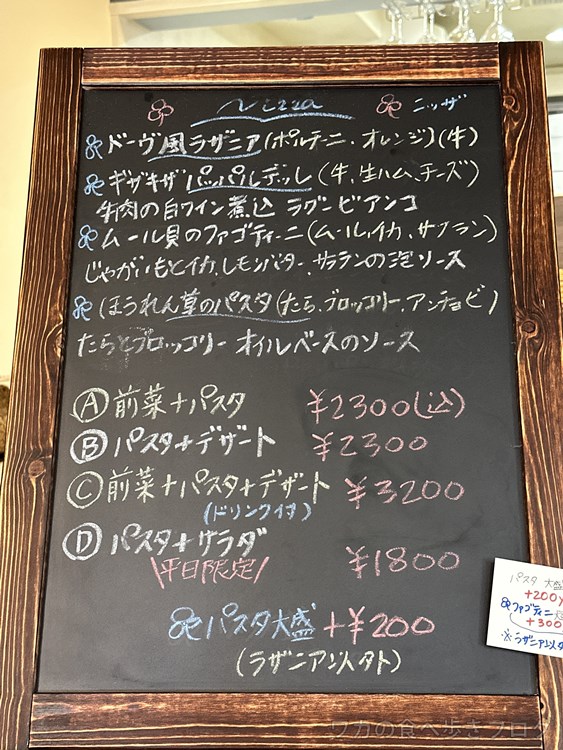 Nizza ニッザ
ドーヴ風ラザニア(ポルチーニ、オレンジ)(牛)
ギザギザパッパルデッレ(牛、生ハム、チーズ)
牛肉の白ワイン煮込 ラグービアンコ
ムール貝のファゴティーニ(ムール、イカ、サフラン)
じゃがいもとイカ、レモンバター、サフランの泡ソース
ほうれん草のパスタ(たら、ブロッコリー、アンチョビ)
たらとブロッコリー オイルベースのソース
Ⓐ 前菜+パスタ ¥2300(込)
Ⓑ パスタ+デザート ¥2300
Ⓒ 前菜+パスタ+デザート ¥3200
(ドリンク付)
Ⓓ パスタ+サラダ ¥1800
\平日限定/
パスタ大盛 +¥200
(ラザニア以外)
パスタ 大盛
+200
ファゴティーニ
+300
※ラザニア以外
ワカの食べ歩きブログ